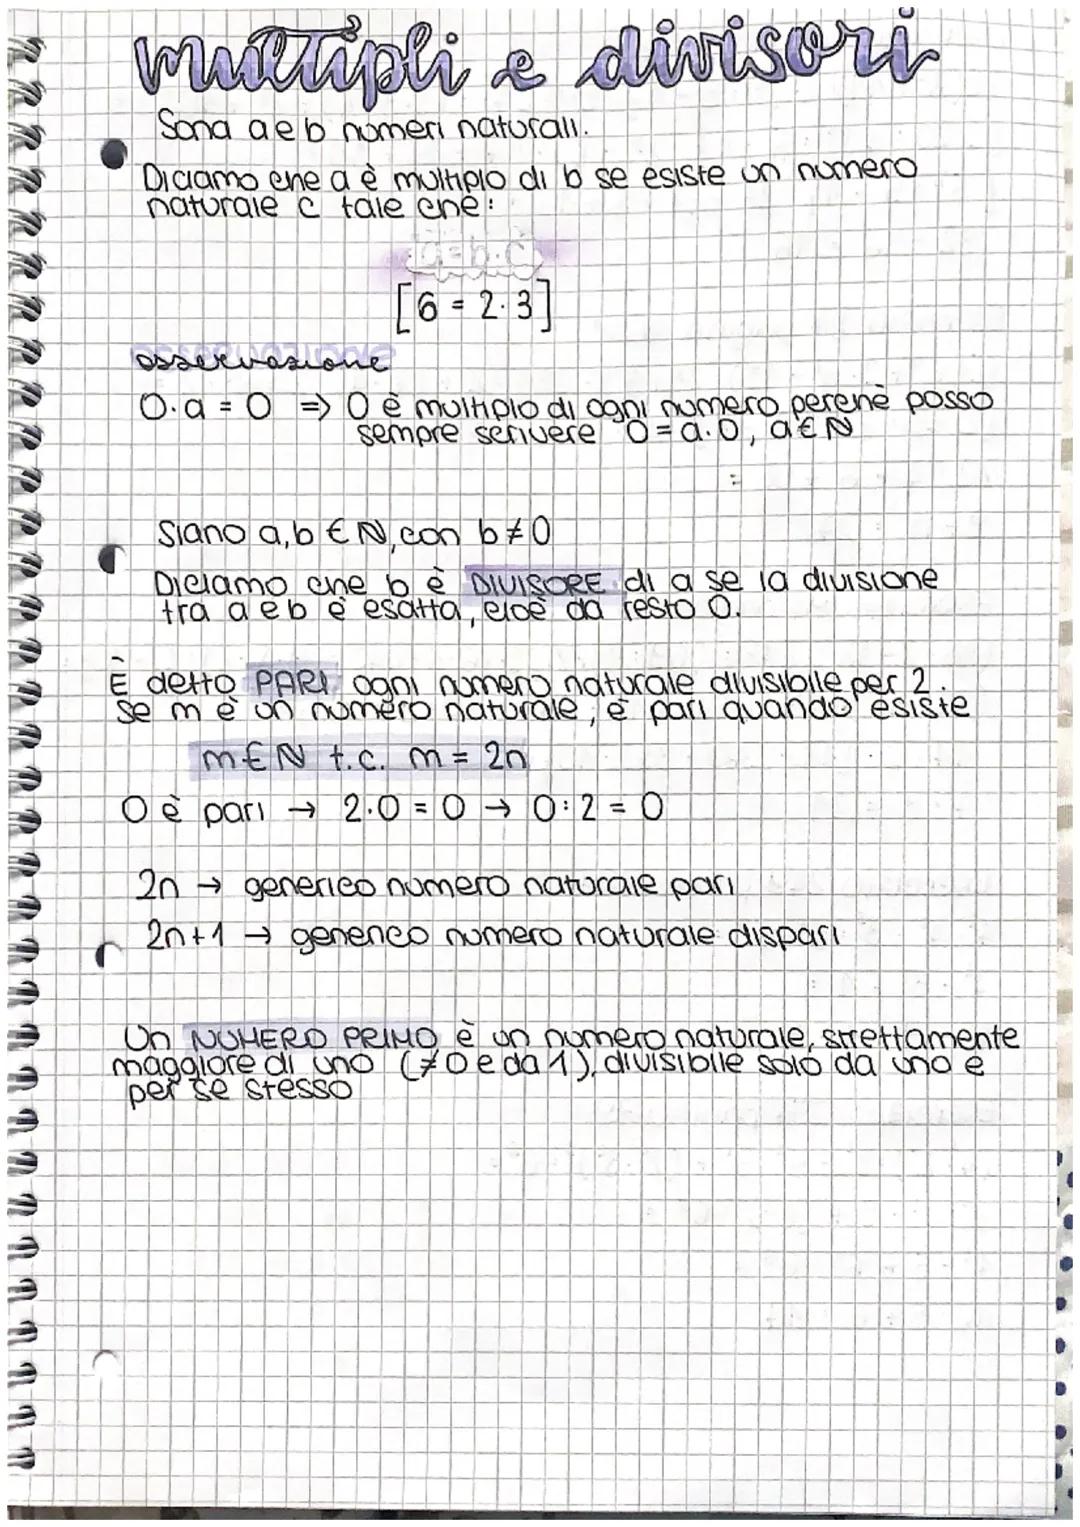 multipli e divisori
Sono a e b numeri naturali.
Diciamo che a è multiplo di b se esiste un numero
naturale c tale che:
a=b·c
[6 = 2·3]
osservazione
0·a = 0 ⇒ 0 è multiplo di ogni numero perché posso
sempre scrivere 0=a·0, a∈ℕ
Siano a,b ∈ ℕ, con b≠0
Diciamo che b è DIVISORE di a se la divisione
tra a e b è esatta, cioè da resto 0.
È detto PARI ogni numero naturale divisibile per 2.
Se m è un numero naturale, è pari quando esiste
m∈ℕ t.c. m = 2n
0 è pari → 2·0 = 0 → 0:2 = 0
2n → generico numero naturale pari
2n+1 → generico numero naturale dispari
Un NUMERO PRIMO è un numero naturale, strettamente
maggiore di uno (≠0 e da 1), divisibile solo da uno e
per se stesso